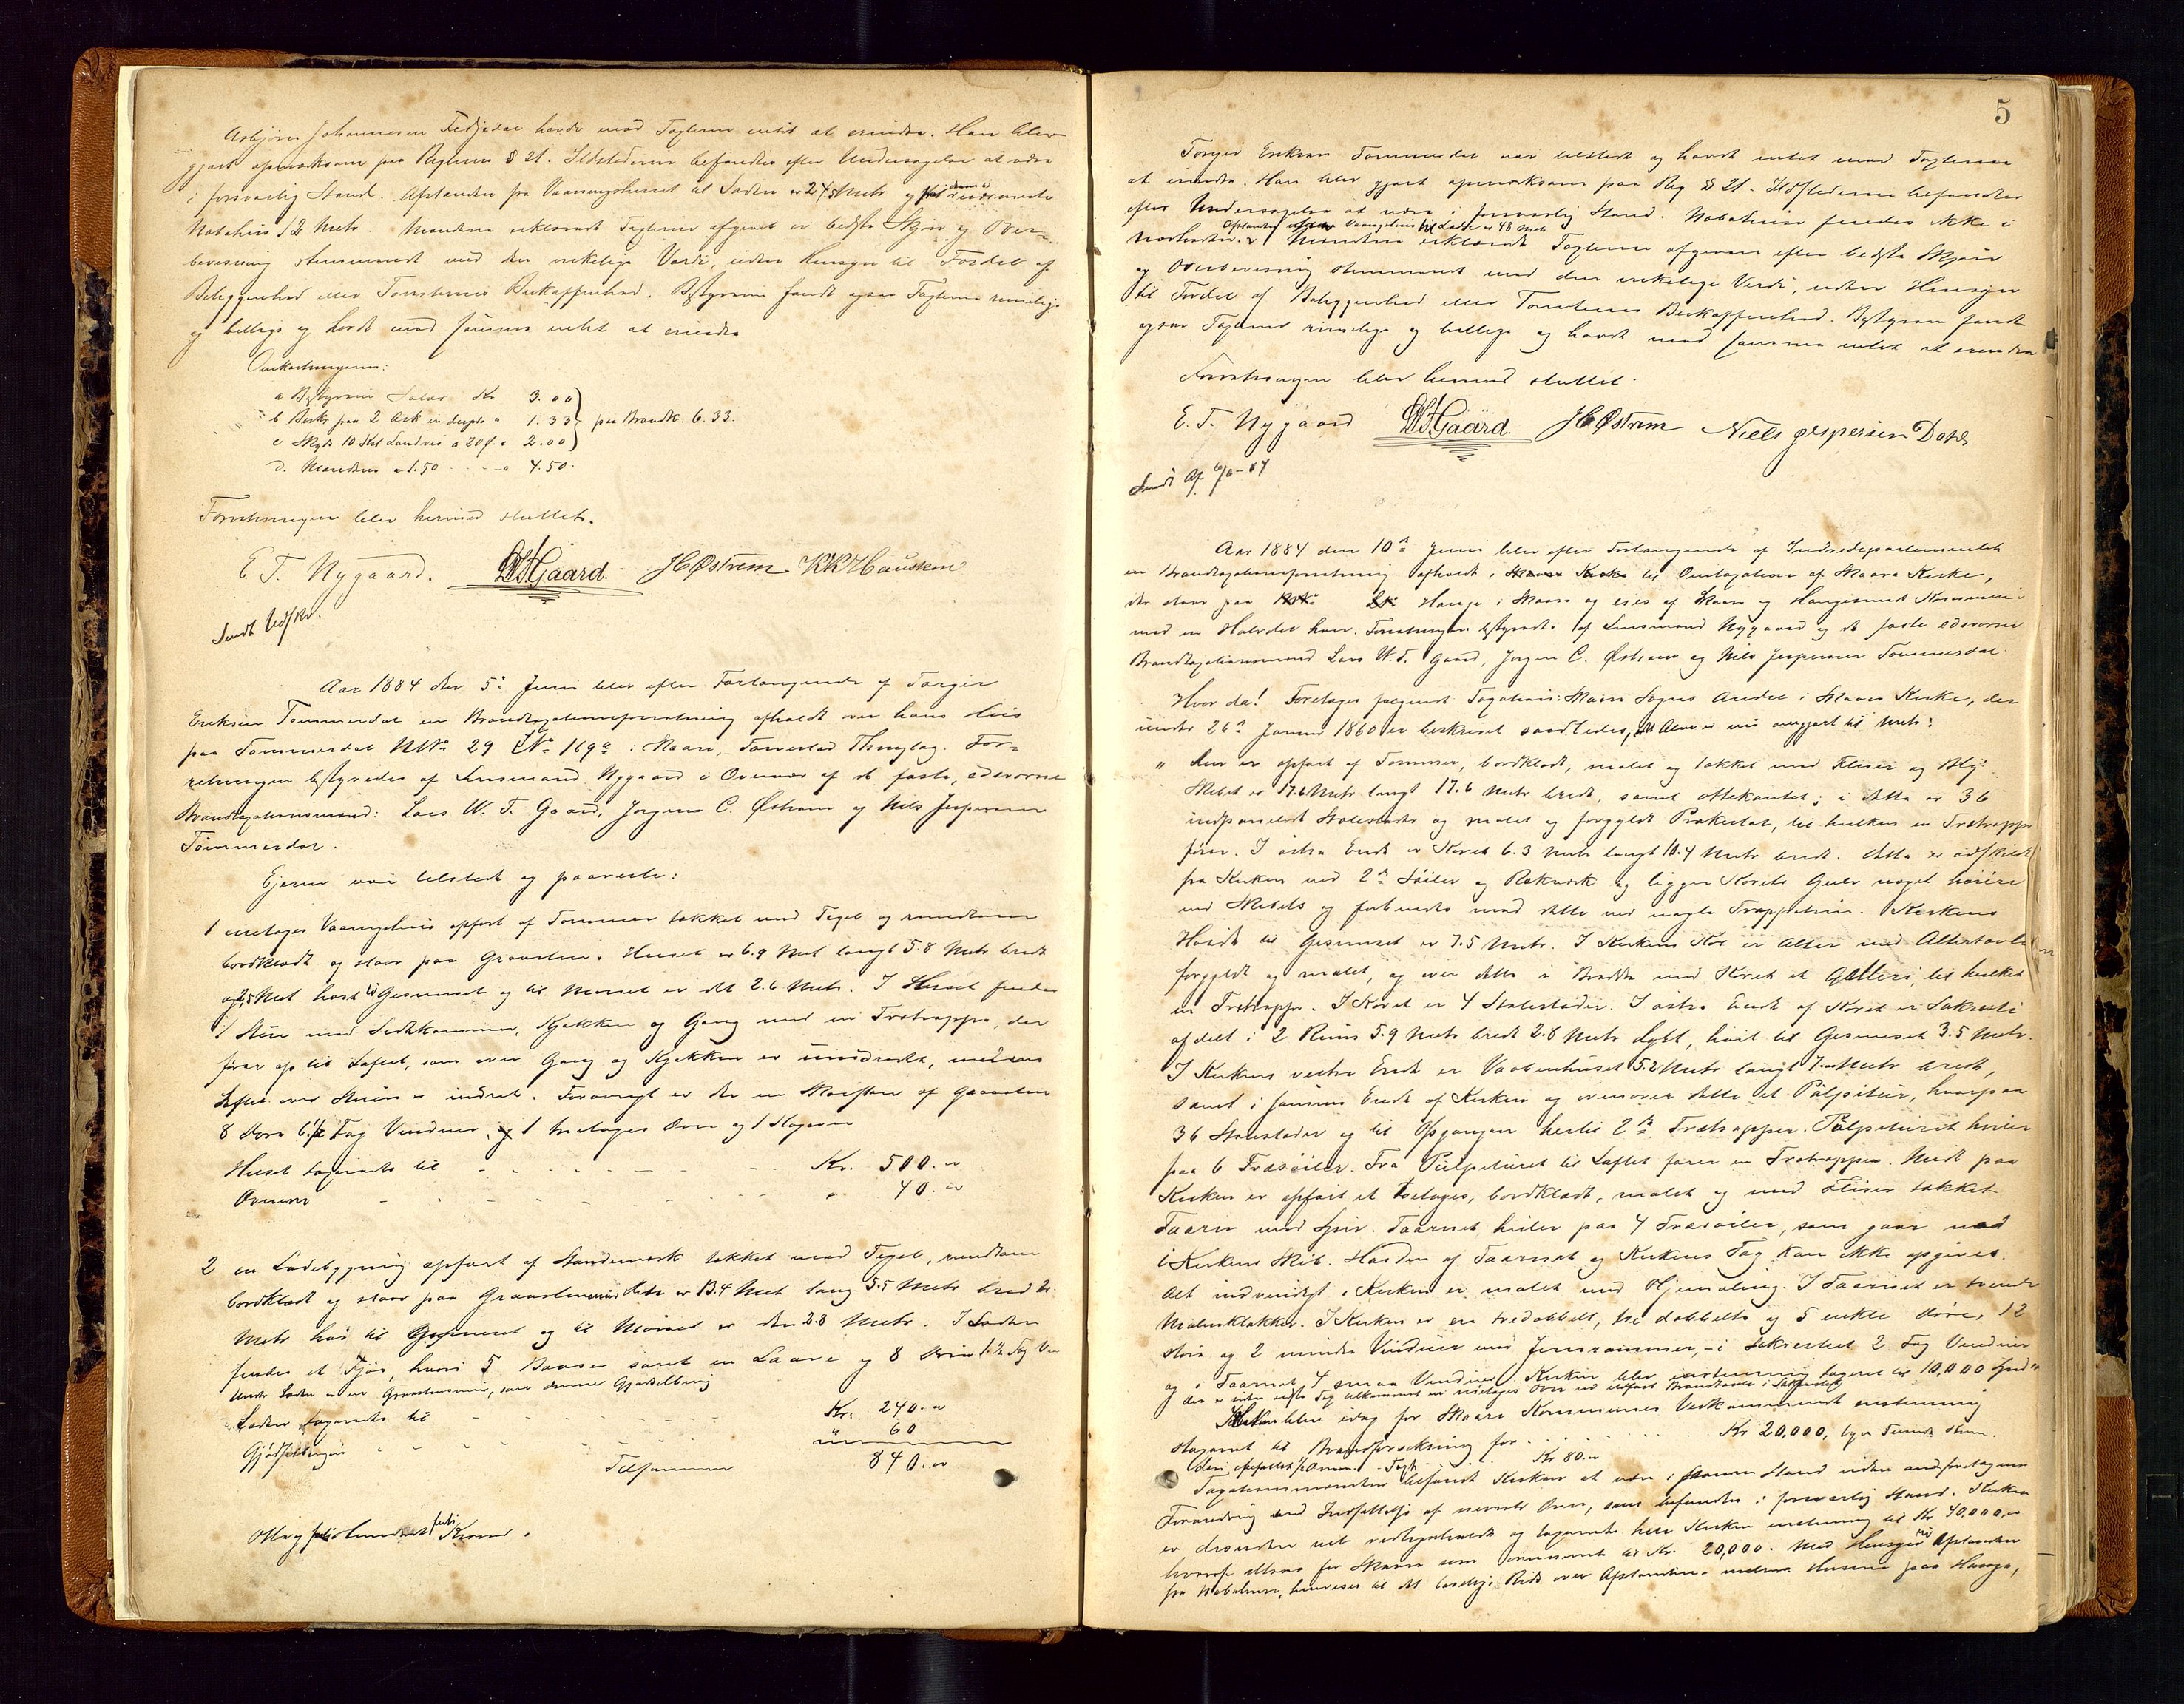 Asbjørn Johannesen Fedjedal havde mod Taxterne intet at erindre. Han blev
gjort opmærksom paa Reglerne § 21. Ildstederne befandtes efter Undersøgelse at være
i forsvarlig Stand. Afstanden fra Vaaningshuset til Laden er 24 Metr og
Nabohus 12 Metr. Mændene erklærede Taxterne afgivet er bedste Skjøn og Over-
bevisning stemmende med den virkelige Værdi, uden Hensyn til Fordel af
Beliggenhed eller Tomternes Beskaffenhed. Bestyreren fandt ogsaa Taxterne rimelige
og billige og havde mod samme intet at erindre
Omkostningerne:
a Bestyreren Salær Kr 3.00
b Beskr paa 2 Ark in duplo " 1.33 paa Brandk. 6.33.
c Skyds 10 Kil Landvei a 20 ø. " 2.00
d. Mændene a 1.50 - - - " 4.50.
Forretningen blev hermed sluttet.
E. T. Nygaard. LWTGaard. JCØstrem KKHausken
Sendt Udskr.
Aar 1884 den 5te Juni blev efter Forlangende af Torger
Eriksen Tømmerdal en Brandtaxationsforretning afholdt over hans Hus
paa Tømmerdal MNo 29 LNo 169a i Skaare, Torvestad Thinglag. For-
retningen bestyredes af Lensmand Nygaard i Overvær af de faste, edsvorne
Brandtaxationsmænd: Lars W. T. Gaard, Jørgen C. Østrem og Nils Jespersen
Tømmerdal.
Ejeren var tilstede og paaviste:
1 enetages Vaaningshus opført af Tømmer tækket med Tegel og rundtom
bordklædt og staar paa Graasten. Huset er 6.9 Met langt 5.8 Metr bredt
og 2,5 Met høit til Gesimset og til Mønset er det 2.6 Metr. I Huset findes
1 Stue med Sidekammer, Kjøkken og Gang med en Trætrappe, der
fører op til Loftet, som over Gang og Kjøkken er uindredet, medens
Loftet over Stuen er indredt. Forøvrigt er der en Skorsten af Graasten
8 Døre 6 1/2 Fag Vinduer, 1 treetages Ovn og 1 Kogeovn
Huset taxeredes til - - - - - - Kr. 500. "
Ovnene - - - - - - " 40. "
2 en Ladebygning opført af Standerværk tækket med Tegel, rundtom
bordklædt og staar paa Graasten er 13.4 Met lang 5.5 Metr bred 2.
Metr høi til Gesimset og til Mønset er den 2.8 Metr. I Laden
findes et Fjøs, hvori 5 Baaser samt en Laave og 8 Døre 1 1/2 Fag V
Under Laden er en Graastensmur, som danner Gjødselbing
Laden taxeredes til - - - - Kr. 240. "
Gjødselbingen - - - - " 60
Tilsammen 840. "
5
Torger Eriksen Tømmerdal var tilstede og havde intet mod Taxterne
at erindre. Han blev gjort opmærksom paa Reg § 21. Ildstederne befandtes
efter Undersøgelse at være i forsvarlig Stand. Nabohuse findes ikke i
Afstanden Vaaningshus til Lade er 48 Metr
Nærheden. Mændene erklærede Taxterne afgivne efter bedste Skjøn
og Overbevisning stemmende med den virkelige Værdi, uden Hensyn
til Fordel af Beliggenhed eller Tomternes Beskaffenhed. Bestyreren fandt
ogsaa Taxterne rimelige og billige og havde mod samme intet at erindre
Forretningen blev hermed sluttet.
E. T. Nygaard LWTGaard. JCØstrem Niels Jespersen Dahl
Sendt Af. 6/6-84
Aar 1884 den 10de Juni blev efter Forlangende af Indredepartementet
en Brandtaxationsforretning afholdt i Skaare Kirke til Omtaxation af Skaare Kirke,
der staar paa Hauge i Skaare og eies af Skaare og Haugesunds Kommune
med en Halvdel hver. Forretningen bestyredes af Lensmand Nygaard og de faste edsvorne
Brandtaxationsmænd Lars W. T. Gaard, Jørgen C. Østrem og Nils Jespersen Tømmerdal.
Hvor da! Foretages følgende Taxation: Skaare Sogns Andel i Skaare Kirke, der
under 26de Januar 1860 er beskrevet saaledes, at Alen er nu omgjort til Metr:
" Den er opført af Tømmer, bordklædt, malet og tækket med Fliser og Bly
Skibet er 17.6 Metr langt 17.6 Metr bredt, samt ottekantet; i dette er 36
indpanelede Stolestader og malet og forgyldt Prækestol, til hvilken en Trætrappe
fører. I østre Ende er Koret 6.3 Metr langt 10.4 Metr bredt. Dette er adskilt
fra Kirken ved 2de Søiler og Rækværk og ligger Korets Gulv noget høiere
end Skibets og forbindes med dette ved nogle Trappetrin. Kirkens
Høide til Gesimset er 7.5 Metr. I Kirkens Kor er Alter med Altertavle
forgyldt og malet, og over dette i Bredde med Koret et Galleri, til hvilket
en Trætrappe. I Koret er 4 Stolestader. I østre Ende af Koret er Sakristi
afdelt i 2 Rum 5.9 Metr bredt 2.8 Metr dybt, høit til Gesimset 3.5 Metr.
I Kirkens vestre Ende er Vaabenhuset 5.2 Metr langt 7. Metr bredt,
samt i samme Ende af Kirken og ovenover dette et Pulpitur, hvorpaa
36 Stolestader og til Opgangen hertil 2de Trætrapper. Pulpituret hviler
paa 6 Træsøiler. Fra Pulpituret til Loftet fører en Trætrappe. Midt paa
Kirken er opført et toetages, bordklædt, malet og med Fliser tækket
Taarn med Spir. Taarnet hviler paa 4 Træsøiler, som gaar ned
i Kirkens Skib. Høiden af Taarnet og Kirkens Tag kan ikke opgives.
Alt indvendigt i Kirken er malet med Oljemaling. I Taarnet er tvende
Malmklokker. I Kirken er en tredobbelt, tre dobbelte og 5 enkle Døre, 12
store og 2 mindre Vinduer med Jernrammer, - i Sakristiet 2 Fag Vinduer
og i Taarnet 4 smaa Vinduer. Kirken blev enstemmig taxeret til 10,000 Spd"
der er siden sidste Tax tilkommet en toetages Ovn
Kirken blev idag for Skaare Kommunes Vedkommende enstemmig
taxeret til Brandforsikring for . . . . . . Kr 20,000, tyve Tusinde Kroner.
Kr 80."
Taxationsmændene befandt Kirken at være i samme Stand uden anden foretagen
Forandring end Indsættelse af nævnte Ovn, som befandtes i forsvarlig Stand. Kirken
er desuden vel vedligeholdt og taxeredes hele Kirken enstemmig til Kr 40,000."
hvoraf altsaa for Skaare Kr. 20,000. Med Hensyn til Afstanden
fra Nabohuse, henvises til det Rids over Afstandene mellem Husene paa Hauge,